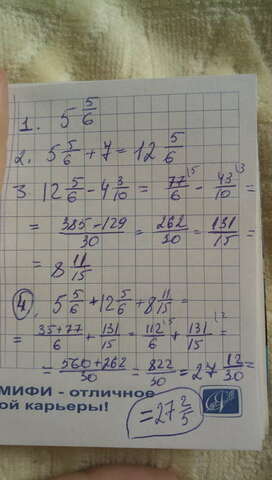 1. 5 5/6
2. 5 5/6 + 7 = 12 5/6
3. 12 5/6 - 4 3/10 = 77/6 \5 - 43/10 \3 =
= 385-129/30 = 262/30 = 131/15 =
= 8 11/15
4. 5 5/6 + 12 5/6 + 8 11/15 =
= 35+77/6 + 131/15 = 112/6 \5 + 131/15 \2 =
= 560+262/30 = 822/30 = 27 12/30 =
= 27 2/5
МИФИ - отличное
ой карьеры!